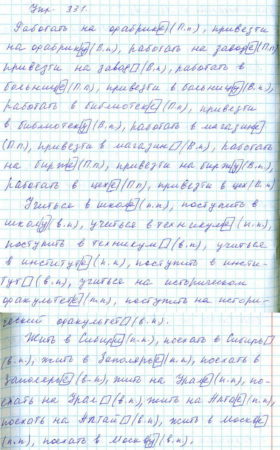 Упр. 331.
Работать на фабрике (П.п), привезти
на фабрику (В.п), работать на заводе (П.п)
привезти на завод□ (В.п), работать в
больнице (П.п), привезти в больницу (В.п),
работать в библиотеке (П.п), привезти
в библиотеку (В.п), работать в магазине
(П.п), привезти в магазин□ (В.п), работать
на бирже (П.п), привезти на биржу (В.п),
работать в цехе (П.п), привезти в цех (В.п)
Учиться в школе (п.п), поступить в
школу (в.п), учиться в техникуме (п.п),
поступить в техникум□ (в.п), учиться
в институте (п.п), поступить в инсти-
тут□ (в.п), учиться на историческом
факультете (п.п), поступить на истори-
ческий факультет□ (в.п).
Жить в Сибири (п.п), поехать в Сибирь□
(в.п), жить в Заполярье (п.п), поехать в
Заполярье (в.п), жить на Урале (п.п), по-
ехать на Урал□ (в.п), жить на Алтае (п.п),
поехать на Алтай□ (в.п), жить в Москве
(п.п), поехать в Москву (в.п).